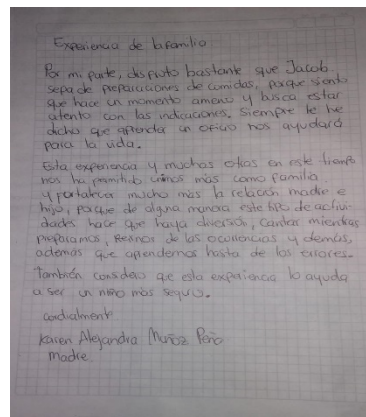 Experiencia de la familia
Por mi parte, disfruto bastante que Jacob
sepa de preparaciones de comidas, porque siento
que hace un momento ameno y busca estar
atento con las indicaciones. Siempre le he
dicho que aprender un oficio nos ayudará
para la vida.
Esta experiencia y muchas otras en este tiempo
nos ha permitido unirnos más como familia
y fortalecer mucho más la relación madre e
hijo, porque de alguna manera este tipo de activi-
dades hace que haya diversión, cantar mientras
preparamos, reirnos de las ocurrencias y demás,
además que aprendemos hasta de los errores.
También considero que esta experiencia lo ayuda
a ser un niño más seguro.
Cordialmente
Karen Alejandra Muñoz Peña
Madre.